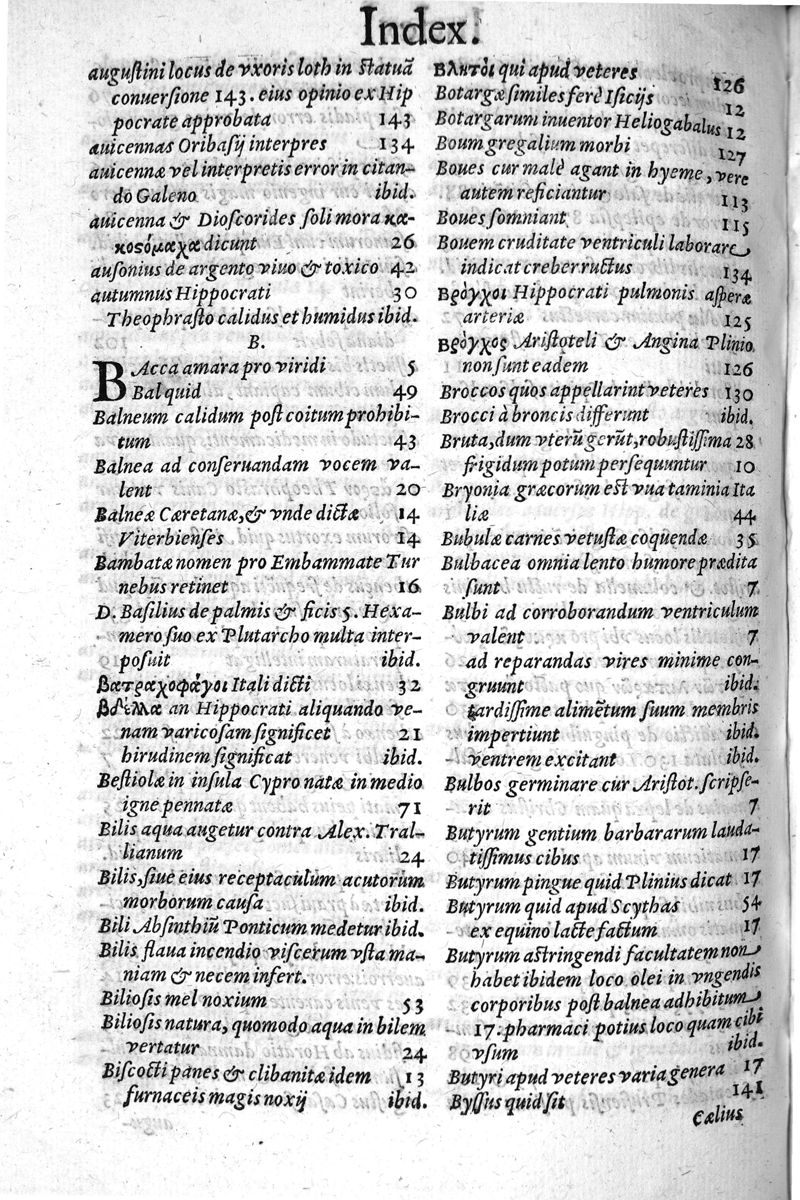 Index.
augustini locus de vxoris loth in statuā
conuersione 143. eius opinio ex Hip
pocrate approbata 143
auicennas Oribasij interpres 134
auicennæ vel interpretis error in citan-
do Galeno ibid.
auicenna & Dioscorides soli mora κα-
κοςόμαχα dicunt 26
ausonius de argento viuo & toxico 42
autumnus Hippocrati 30
Theophrasto calidus et humidus ibid.
B.
BAcca amara pro viridi 5
Bal quid 49
Balneum calidum post coitum prohibi-
tum 43
Balnea ad conseruandam vocem va-
lent 20
Balneæ Cæretanæ, & vnde dictæ 14
Viterbienses 14
Bambatæ nomen pro Embammate Tur
nebus retinet 16
D. Basilius de palmis & ficis 5. Hexa-
mero suo ex Plutarcho multa inter-
posuit ibid.
βατραχοφάγοι Itali dicti 32
βδέλλα an Hippocrati aliquando ve-
nam varicosam significet 21
hirudinem significat ibid.
Bestiolæ in insula Cypro natæ in medio
igne pennatæ 71
Bilis aqua augetur contra Alex. Tral-
lianum 24
Bilis, siue eius receptaculum acutorum
morborum causa ibid.
Bili Absinthiū Ponticum medetur ibid.
Bilis flaua incendio viscerum vsta ma-
niam & necem infert.
Biliosis mel noxium 53
Biliosis natura, quomodo aqua in bilem
vertatur 24
Biscocti panes & clibanitæ idem 13
furnaceis magis noxij ibid.
Βλητὸι qui apud veteres 126
Botargæ similes ferè Isicijs 12
Botargarum inuentor Heliogabalus 12
Boum gregalium morbi 127
Boues cur malè agant in hyeme, vere
autem reficiantur 113
Boues somniant 115
Bouem cruditate ventriculi laborare
indicat creber ructus 134
Βρόγχοι Hippocrati pulmonis asperæ
arteriæ 125
Βρόγχος Aristoteli & Angina Plinio
non sunt eadem 126
Broccos quos appellarint veteres 130
Brocci à broncis differunt ibid.
Bruta, dum vterū gerūt, robustissima 28
frigidum potum persequuntur 10
Bryonia græcorum est vua taminia Ita
liæ 44
Bubulæ carnes vetustæ coquendæ 35
Bulbacea omnia lento humore prædita
sunt 7
Bulbi ad corroborandum ventriculum
valent 7
ad reparandas vires minime con-
gruunt ibid.
tardissime alimētum suum membris
impertiunt ibid.
ventrem excitant ibid.
Bulbos germinare cur Aristot. scripse-
rit 7
Butyrum gentium barbararum lauda-
tissimus cibus 17
Butyrum pingue quid Plinius dicat 17
Butyrum quid apud Scythas 54
ex equino lacte factum 17
Butyrum astringendi facultatem non
habet ibidem loco olei in vngendis
corporibus post balnea adhibitum
17. pharmaci potius loco quam cibi
vsum ibid.
Butyri apud veteres varia genera 17
Byssus quid sit 141
Cælius